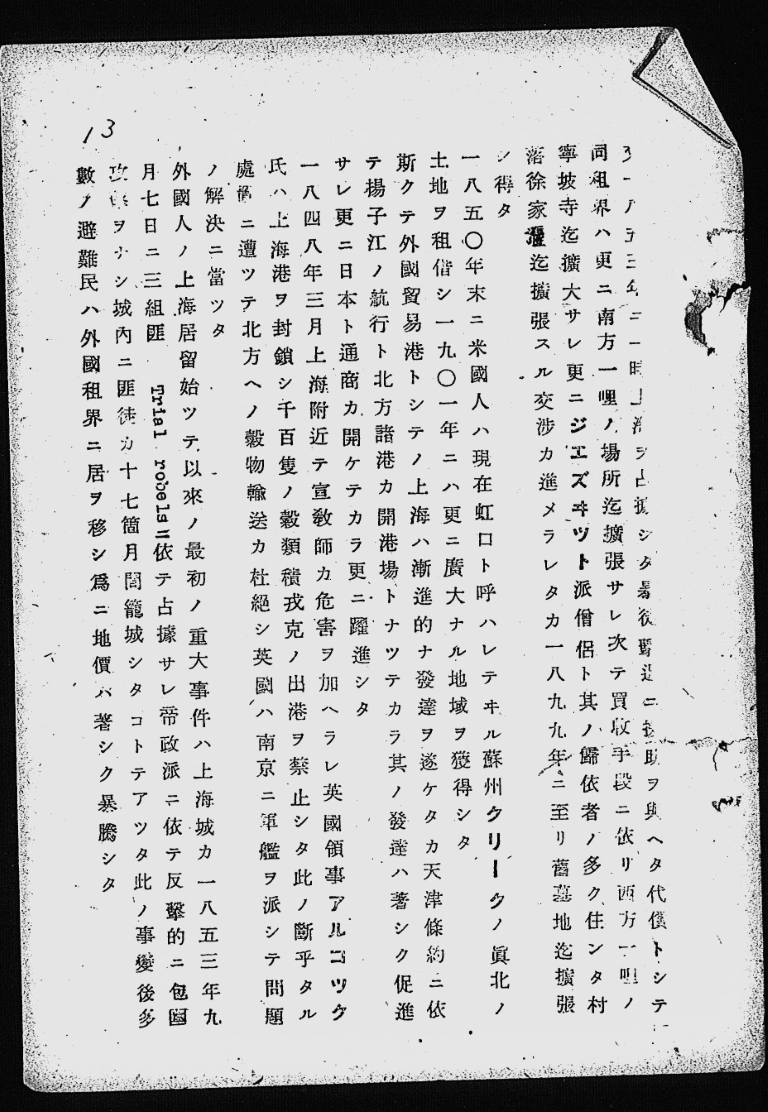 13
一八五三年ニ一時上海ヲ占據シタ暴徒奪還ニ援助ヲ與ヘタ代償トシテ
同租界ハ更ニ南方一哩ノ場所迄擴張サレ次テ買收手段ニ依リ西方一哩ノ
寧坡寺迄擴大サレ更ニジエズヰツト派僧侶ト其ノ歸依者ノ多ク住ンタ村
落徐家滙迄擴張スル交涉カ進メラレタカ一八九九年ニ至リ舊墓地迄擴張
シ得タ
一八五〇年末ニ米國人ハ現在虹口ト呼ハレテヰル蘇州クリークノ眞北ノ
土地ヲ租借シ一九〇一年ニハ更ニ廣大ナル地域ヲ獲得シタ
斯クテ外國貿易港トシテノ上海ハ漸進的ナ發達ヲ遂ケタカ天津條約ニ依
テ揚子江ノ航行ト北方諸港カ開港場トナツテカラ其ノ發達ハ著シク促進
サレ更ニ日本ト通商カ開ケテカラ更ニ躍進シタ
一八四八年三月上海附近テ宣教師カ危害ヲ加ヘラレ英國領事アルコツク
氏ハ上海港ヲ封鎖シ千百隻ノ穀類積戎克ノ出港ヲ禁止シタ此ノ斷乎タル
處置ニ遭ツテ北方ヘノ穀物輸送カ杜絕シ英國ハ南京ニ軍艦ヲ派シテ問題
ノ解決ニ當ツタ
外國人ノ上海居留始ツテ以來ノ最初ノ重大事件ハ上海城カ一八五三年九
月七日ニ三組匪 Trial robelsニ依テ占據サレ帝政派ニ依テ反擊的ニ包圍
攻擊ヲナシ城內ニ匪徒カ十七箇月間籠城シタコトテアツタ此ノ事變後多
數ノ避難民ハ外國租界ニ居ヲ移シ爲ニ地價ハ著シク暴騰シタ